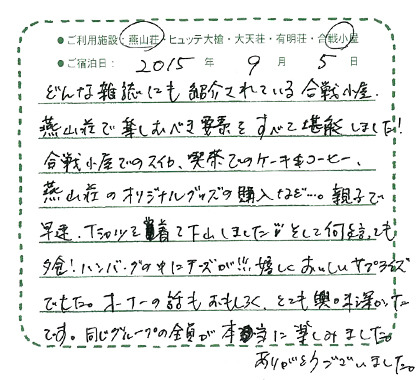 ●ご利用施設:燕山荘・ヒュッテ大槍・大天荘・有明荘・合戦小屋
●ご宿泊日: 2015 年 9 月 5 日
どんな雑誌にも紹介されている合戦小屋、
燕山荘で楽しむべき要素をすべて堪能しました!
合戦小屋でのスイカ、喫茶でのケーキ&コーヒー、
燕山荘のオリジナルグッズの購入など…。親子で
早速、Tシャツを着て下山しました!! そして何と言っても
夕食!ハンバーグの中にチーズが!!! 嬉しくおいしいサプライズ
でした。オーナーの話もおもしろく、とても興味深かった
です。同じグループの全員が本当に楽しみました。
ありがとうございました。